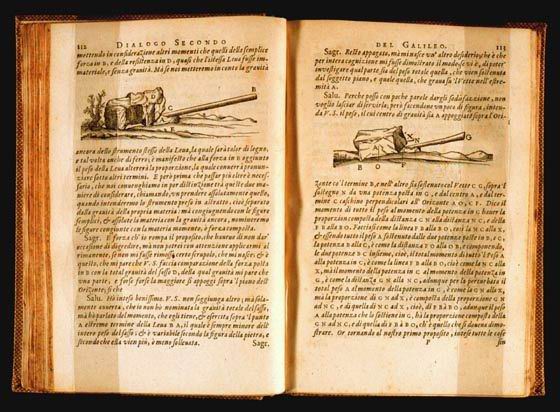 112 DIALOGO SECONDO
mettendo in considerazione altri momenti che quelli della semplice
forza in D, e della resistenza in D, quasi che l'istessa Leua fusse im-
materiale, e senza grauità. Ma se noi metteremo in conto la grauità
B
D
G
C
A
E
ancora dello strumento stesso della Leua, la quale sarà talor di legno,
e tal volta anche di ferro; è manifesto che alla forza in B aggiunto
il peso della Leua altererà la proporzione, la quale conuerrà pronun-
ziare sotto altri termini. E però prima che passar più oltre è neces-
sario, che noi conuenghiamo in por distinzione trà queste due ma-
niere di considerare, chiamando, vn prendere assolutamente quello,
quando intenderemo lo strumento preso in astratto, cioè separato
dalla grauità della propria materia; mà congiugnendo con le figure
semplici, & assolute la materia con la grauità ancora, nomineremo
le figure congiunte con la materia momento, ò forza composta.
Sagr. E forza ch'io rompa il proposito, che haueuo di non dar
occasione di digredire, mà non potrei con attenzione applicarmi al
rimanente, se non mi fusse rimosso certo scrupolo, che mi nasce; & è
questo, che mi pare che V.S. faccia comparazione della forza posta
in B con la total grauità del sasso D, della qual grauità mi pare che
vna parte, e forse forse la maggiore si appoggi sopra 'l piano dell'
orizonte; sì che
Salu. Hò inteso benissimo. V.S. non soggiunga altro; mà sola-
mente auuerta, che io non hò nominata la grauità totale del sasso,
mà hò parlato del momento, che egli tiene, & esercita sopra 'l punto
A estremo termine della Leua B A, il quale è sempre minore dell'
intero peso del sasso; & è variabile secondo la figura della pietra, e
secondo che ella vien più, è meno solleuata. Sagr.
DEL GALILEO. 113
Sagr. Resto appagato, mà mi nasce vn'altro desiderio, che è che
per intera cognizione mi fusse dimostrato il modo, se vi è, di poter
inuestigar qual parte sia del peso totale quella, che vien sostenuta
dal soggetto piano, e quale quella, che graua sù 'l Vette nell'estre-
mità A.
Salu. Perche posso con poche parole dargli sodisfazione, non
voglio lasciar di seruirla; però facendone vn poco di figura, inten-
da V.S. il peso, il cui centro di grauità sia A appoggiato sopra l'Ori-
A
X
N
G
C
B O F
zonte co'l termine B, nell'altro sia sostenuto col Vette C G, sopra 'l
sostegno N da vna potenza posta in G, e dal centro A, e dal ter-
mine C caschino perpendicolari all'Orizonte A O, C F. Dico il
momento di tutto 'l peso al momento della potenza in G hauer la
proporzion composta della distanza G N alla distanza N C, e della
F B alla B O. Facciasi come la linea F B alla B O, così la N C alla X,
& essendo tutto 'l peso A sostenuto dalle due potenze poste in B, e C,
la potenza B alla C, è come la distanza F O alla O B; e componendo,
le due potenze B C insieme, cioè, il total momento di tutto 'l peso A
alla potenza in C, è come la linea F B alla B O, cioè come la N C alla
X, mà il momento della potenza in C al momento della potenza in
G, è come la distanza G N alla N C, adunque per la perturbata il
total peso A al momento della potenza in G, è come la G N alla X,
mà la proporzione di G N à X, è composta della proporzione G N
ad N C, e di quella di N C à X, cioè, di F B à B O, adunque il peso
A alla potenza che lo sostiene in G, hà la proporzione composta della
G N ad N C, e di quella di F B à B O, ch'è quello che si doueua dimo-
strare. Or tornando al nostro primo proposito, intese tutte le cose
P sin